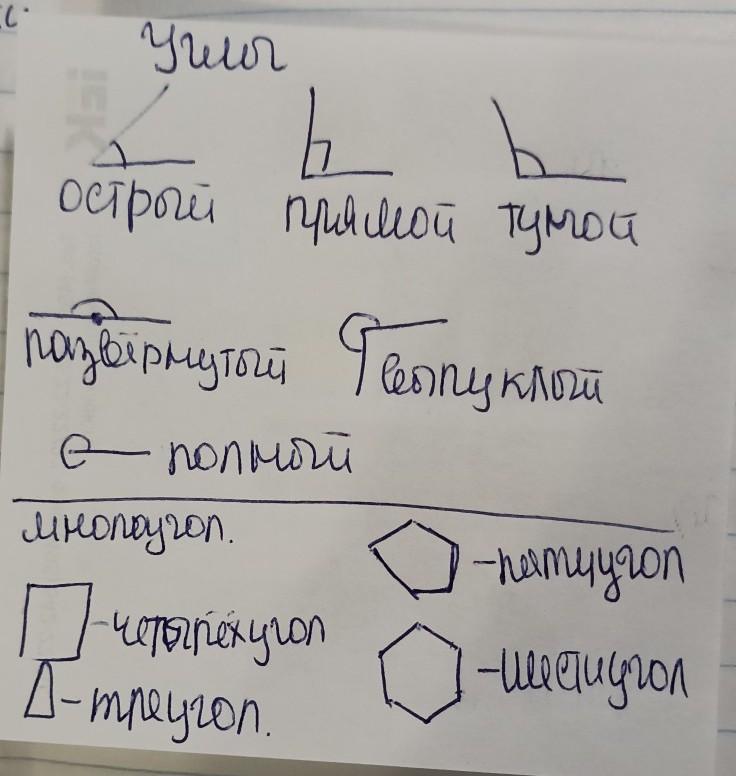 Углы
острый прямой тупой
развёрнутый выпуклый
полный
многоугол.
-пятиугол
-четырёхугол
-шестиугол
-треугол.